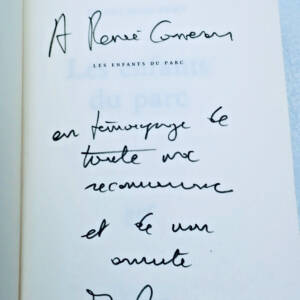 A Renée
LES ENFANTS DU PARC
Les enfants
du parc
en témoignage de
toute ma
reconnaissance
et de mon
amitié